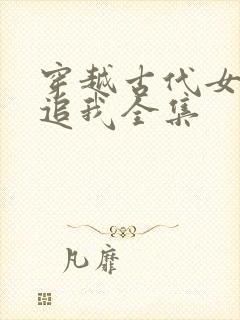 穿越古代女
追我全集
凡靡